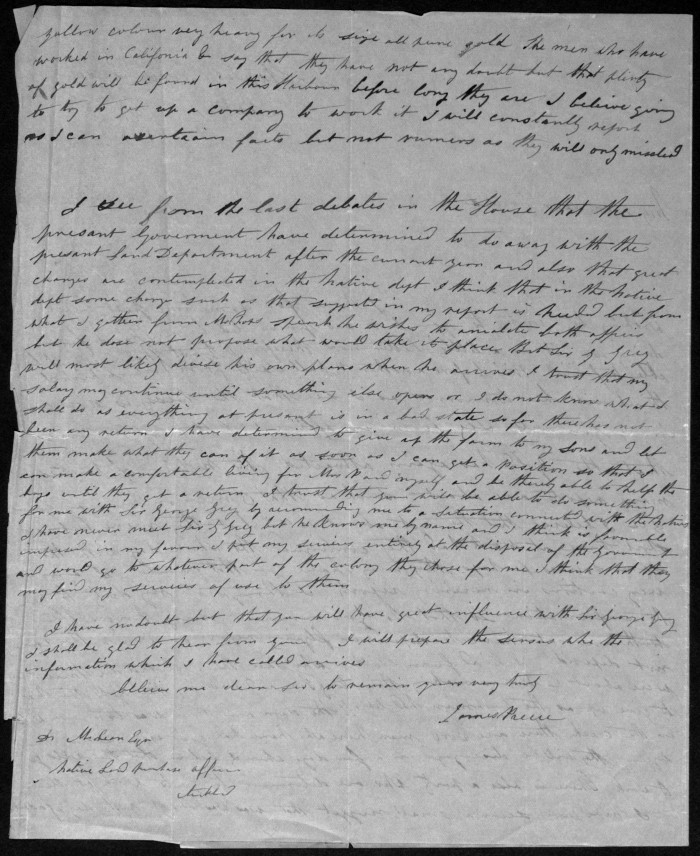 yellow colour very heavy for its size all pure gold The men who have
worked in Califonia & say that they have not any doubt but that plenty
of gold will be found in this Harbour before long they are I believe going
to try to get up a company to work it I will constantly report
as I can assertain facts but not rumers as they will only misslead
I see from the last debates in the House that the
presant Goverment have determined to do away with the
presant Land Department after the currant year and also that great
changes are contemplected in the Native dept I think that in the Native
dept some change such as that suggested in my report is needed but from
what I gather from speech he wishes to anialate both affairs
but he dose not propose what would take its place But Sir G Grey
will most likely devise his own plans when he arrives I trust that my
salary may continue until something else opens or I do not know what I
shall do as everything at present is in a bad state so far there has not
been any return I have determined to give up the farm to my Sons and let
them make what they can of it as soon as I can get a Position so that I
can make a comfortable living for Mrs P and myself and be thereby able to help the
boys until they get a return I trust that you will be able to do something
for me with Sir George Grey by recomending me to a situation connected with the Natives
I have never meet Sir G Grey but he knows me by name and I think is favorable
impresed in my favour I put my services entirely at the disposal of the Goverment
and would go to whatever part of the colony they chose for me I think that they
may find my services of use to them
I have no doubt but that you will have great influence with Sir George Grey
I shall be glad to hear from you I will prepare the sensus whe the
information which I have called arrives
believe me dear Sir to remain yours very truly
James Preece
D. McLean Esqr
Native Land Purchase office
Auckland